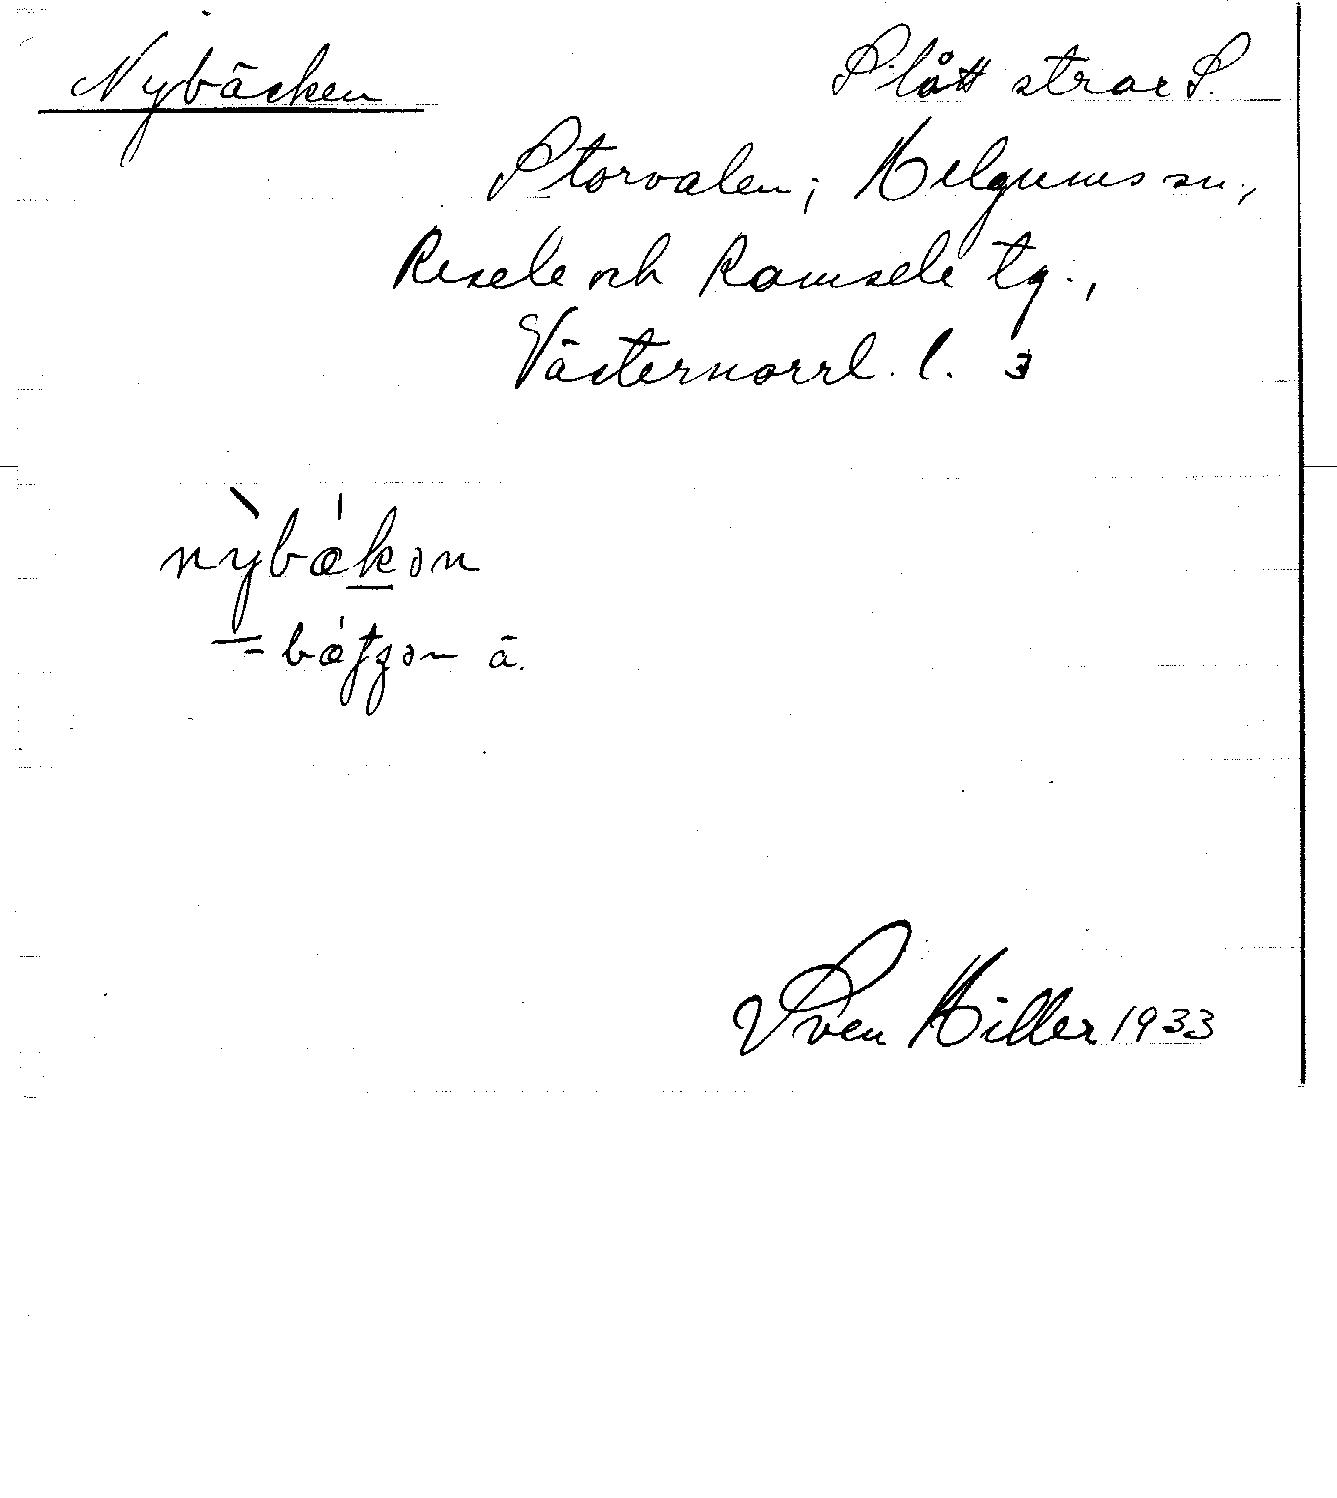 Nybäcken Slått strax S.
Storvalen; Helgums sn.,
Resele och Ramsele tg.,
Västernorrl. l. 3
nỳbækən
= bæ ä.
Sven Hiller 1933